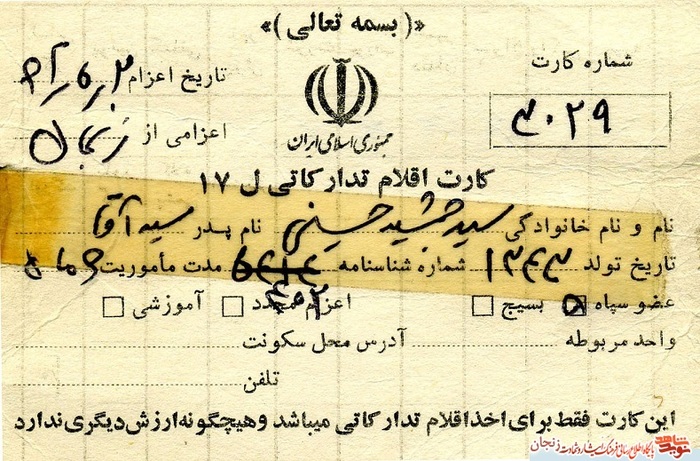 «( بسمه تعالی )»
شماره کارت
۳۰۲۹
تاریخ اعزام
اعزامی از زنجان
جمهوری اسلامی ایران
کارت اقلام تدارکاتی ل ۱۷
نام و نام خانوادگی سید جمشید حسینی نام پدر سید آقا
تاریخ تولد ۱۳۴۳ شماره شناسنامه مدت مأموریت ۶ ماه
عضو سپاه بسیج اعزام مجدد آموزشی
واحد مربوطه آدرس محل سکونت
تلفن
این کارت فقط برای اخذ اقلام تدارکاتی میباشد و هیچگونه ارزش دیگری ندارد
نوید شاهد پایگاه اطلاع رسانی فرهنگ ایثار و شهادت زنجان